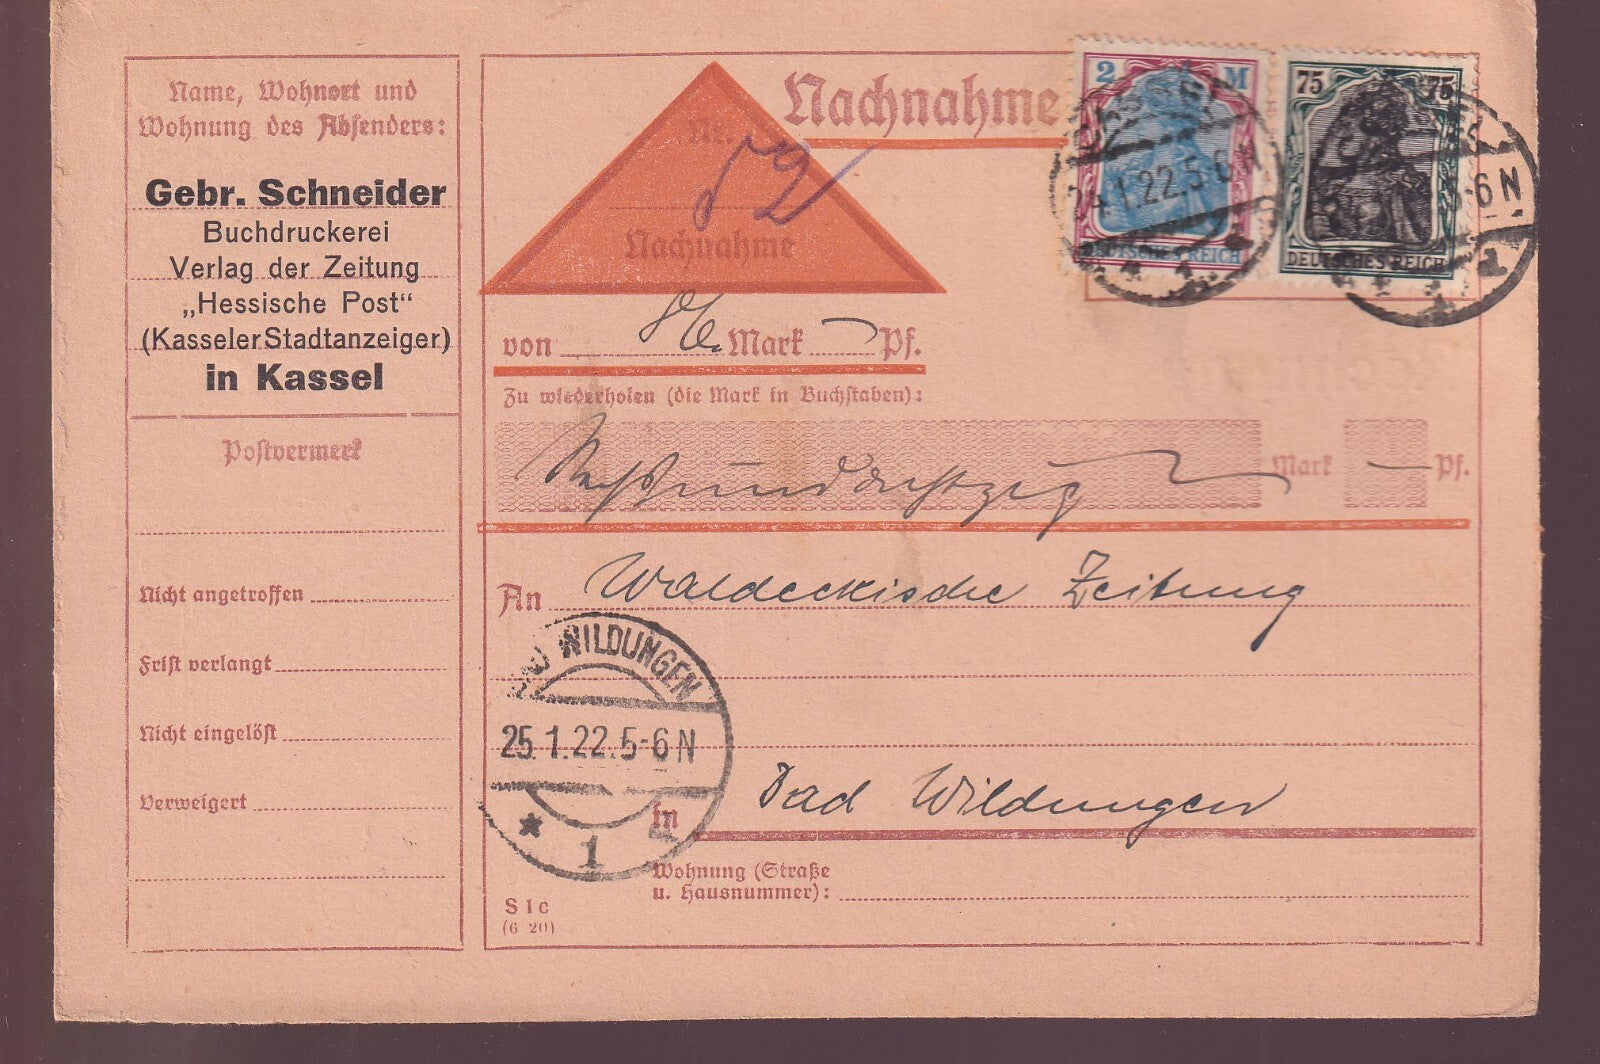 Name, Wohnort und
Wohnung des Absenders:
Gebr. Schneider
Buchdruckerei
Verlag der Zeitung
„Hessische Post“
(Kasseler Stadtanzeiger)
in Kassel
Postvermerk
Nicht angetroffen
Frist verlangt
Nicht eingelöst
Verweigert
Nachnahme
Nr.
52
Nachnahme
2 M
DEUTSCHES REICH
75 75
DEUTSCHES REICH
CASSEL
24.1.22.5-6N
* 1 d
5-6N
* 1 d
von 86. Mark — Pf.
Zu wiederholen (die Mark in Buchstaben):
Sechsundachtzig Mark — Pf.
An Waldeckische Zeitung
BAD WILDUNGEN
25.1.22.5-6N
* 1
in Bad Wildungen
Wohnung (Straße
u. Hausnummer):
S 1 c
(6 20)